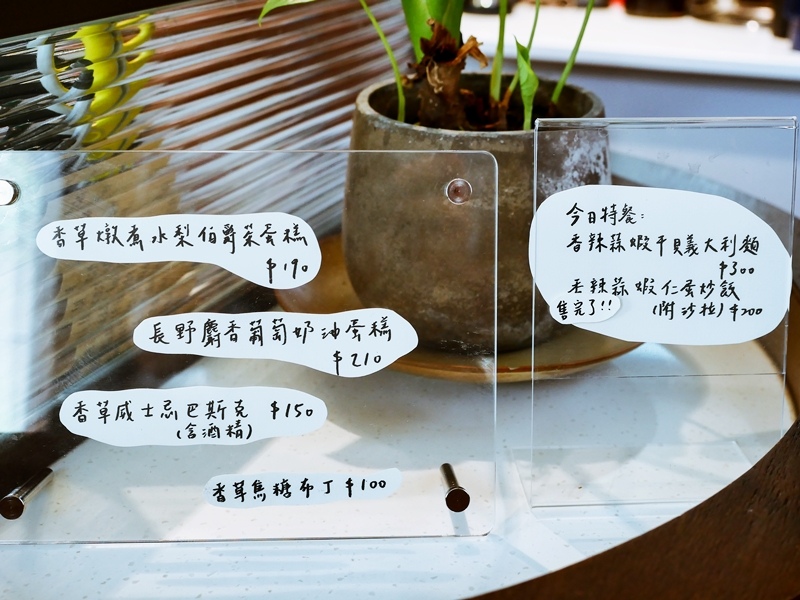 香草燉煮水梨伯爵茶蛋糕
$190
長野麝香葡萄奶油蛋糕
$210
香草威士忌巴斯克 $150
(含酒精)
香草焦糖布丁 $100
今日特餐:
香辣蒜蝦干貝義大利麵
$300
香辣蒜蝦仁蛋炒飯
售完了!! (附沙拉) $200